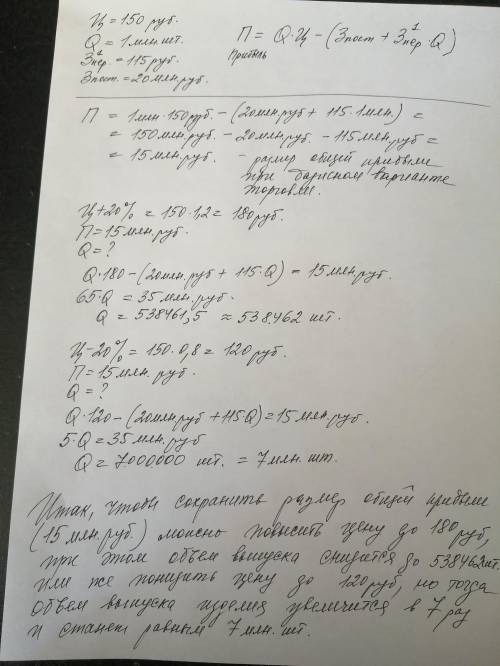 Ц = 150 руб.
Q = 1 млн шт.
З¹пер. = 115 руб.
Зпост. = 20 млн руб.
П = Q·Ц − (Зпост + З¹пер·Q)
Прибыль
П = 1 млн·150 руб. − (20 млн.руб + 115·1 млн.) =
= 150 млн.руб. − 20 млн.руб. − 115 млн.руб =
= 15 млн.руб. - размер общей прибыли
при базисном варианте
торговли.
Ц+20% = 150·1,2 = 180 руб.
П = 15 млн.руб.
Q = ?
Q·180 − (20 млн.руб + 115·Q) = 15 млн.руб.
65·Q = 35 млн.руб.
Q = 538461,5 ≈ 538.462 шт.
Ц−20% = 150·0,8 = 120 руб.
П = 15 млн.руб.
Q = ?
Q·120 − (20 млн.руб + 115Q) = 15 млн.руб.
5·Q = 35 млн.руб
Q = 7000.000 шт. = 7 млн.шт.
Итак, чтобы сохранить размер общей прибыли
(15 млн.руб.) можно повысить цену до 180 руб,
при этом объем выпуска снизится до 538462 шт.
или же понизить цену до 120 руб, но тогда
объем выпуска изделия увеличится в 7 раз
и станет равным 7 млн.шт.